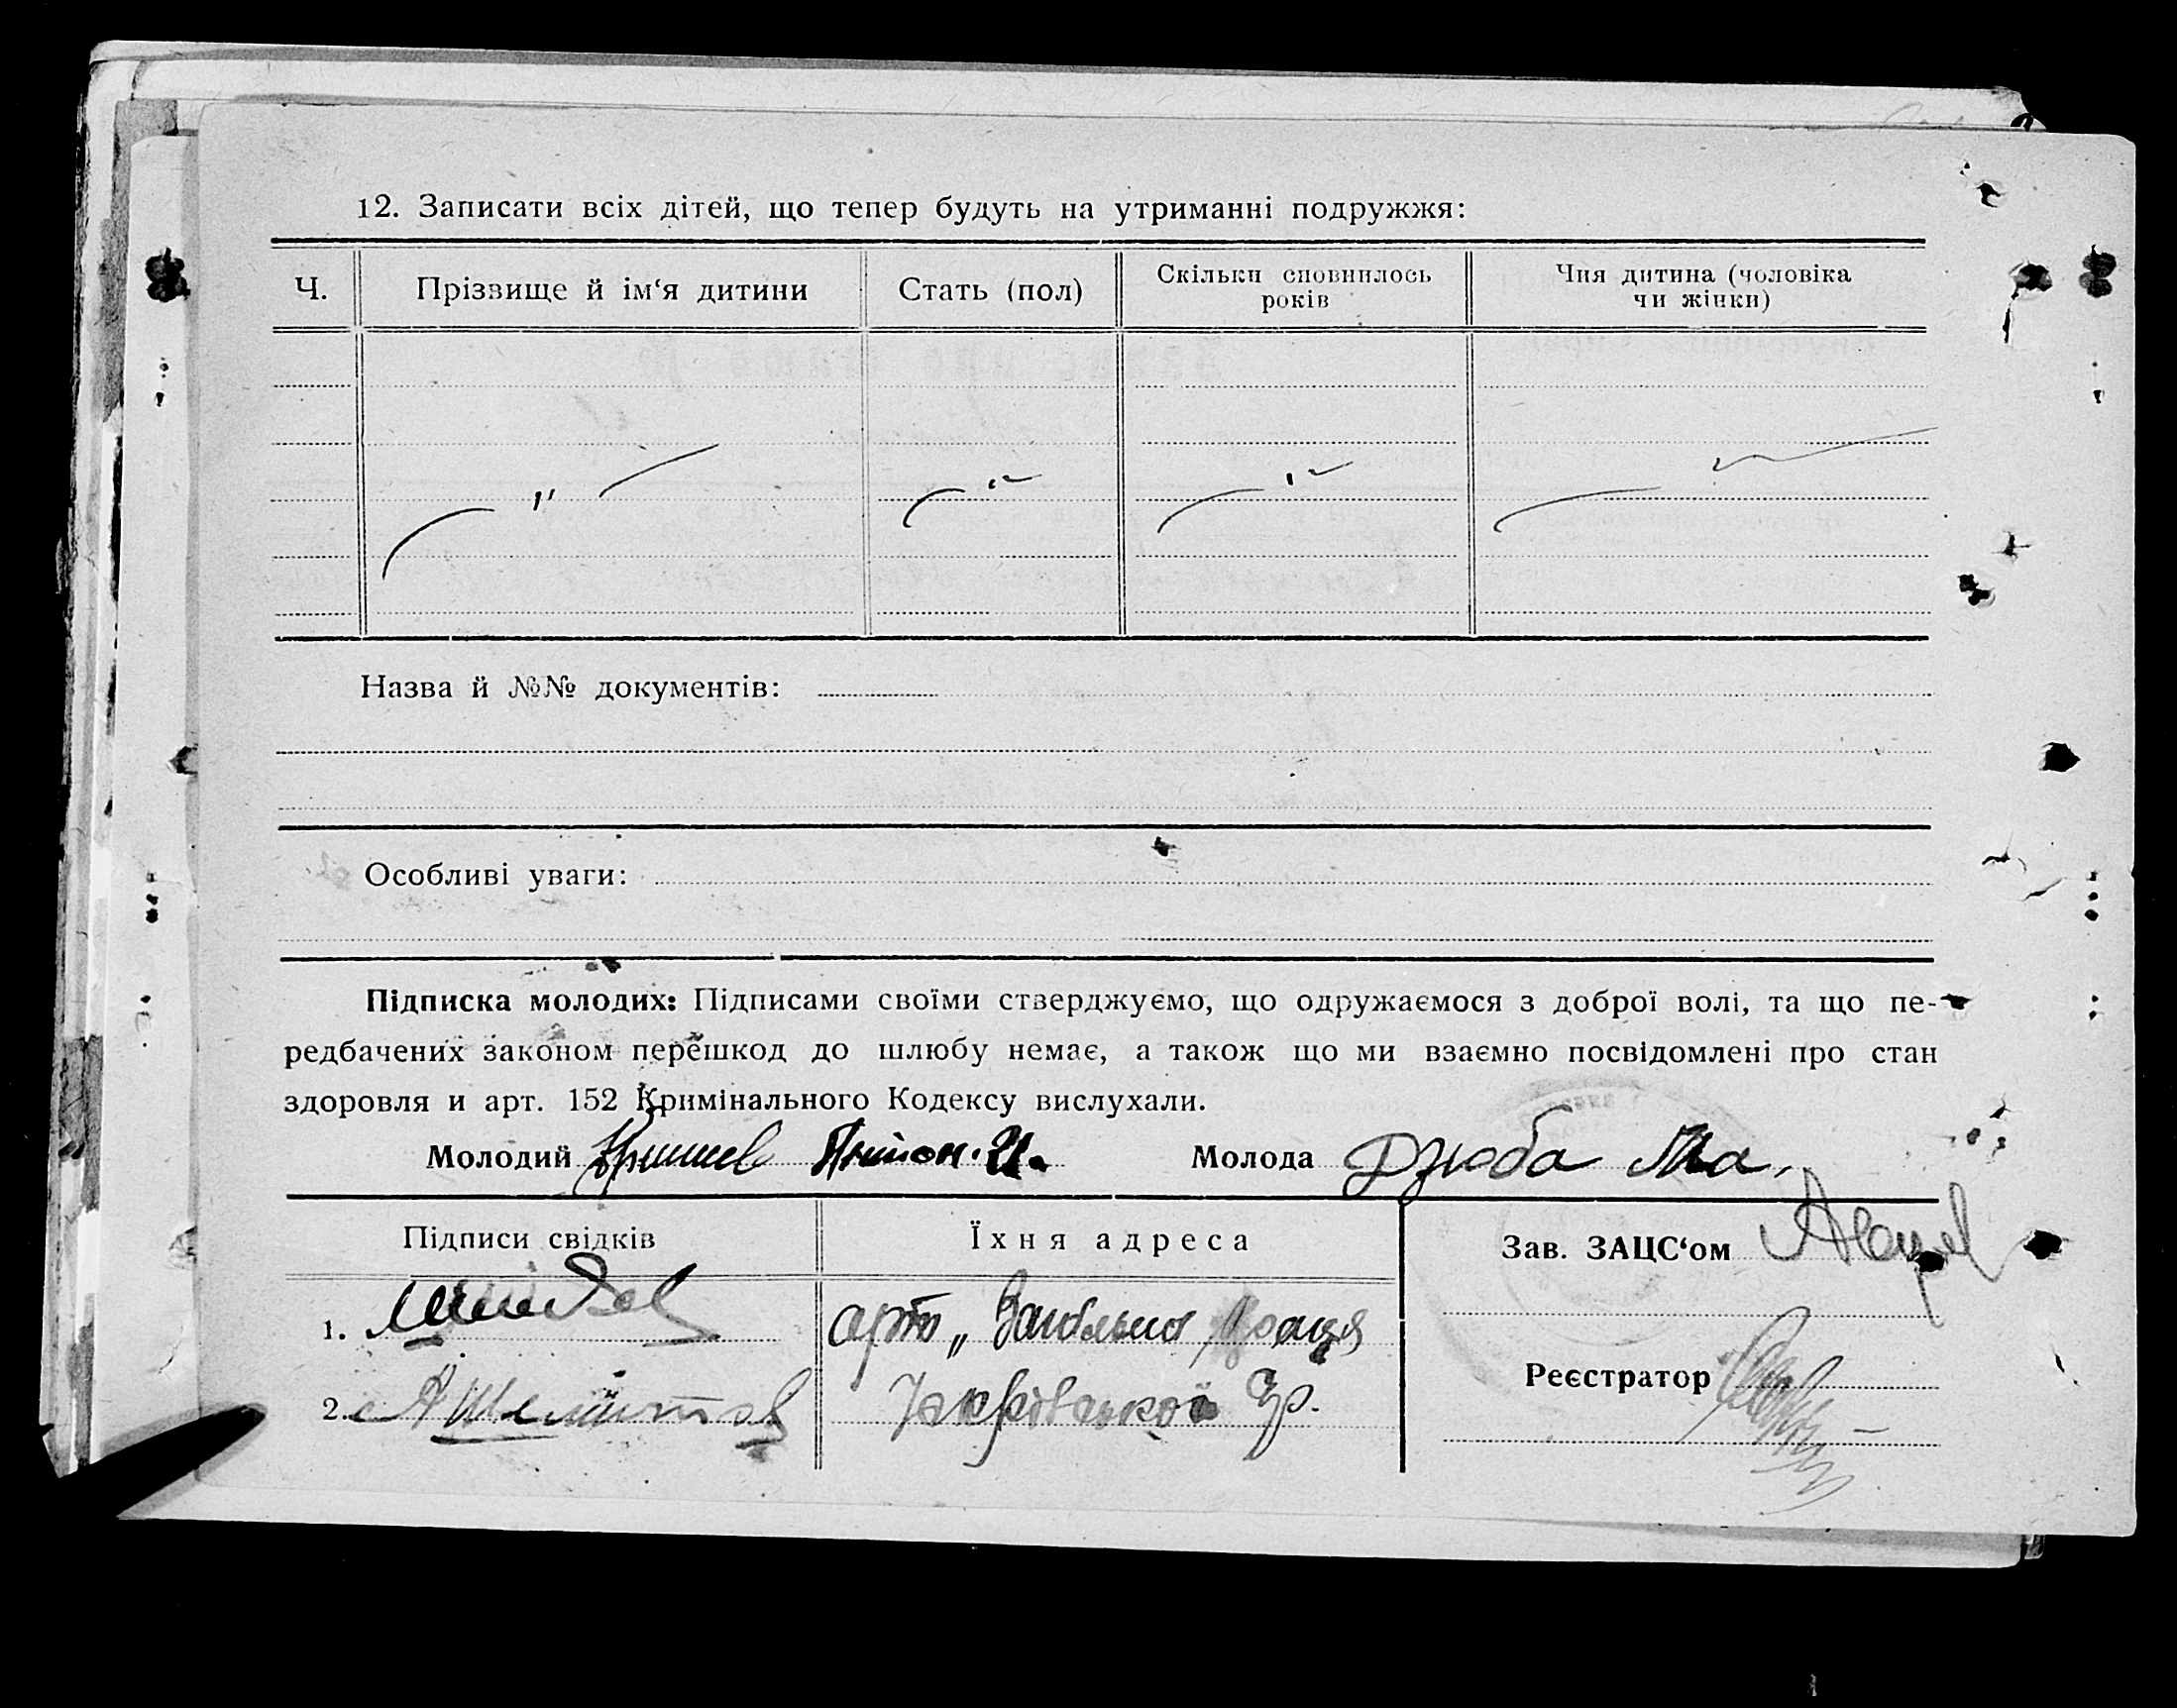 12. Записати всіх дітей, що тепер будуть на утриманні подружжя:
Ч. Прізвище й ім‘я дитини Стать (пол) Скільки сповнилось років Чия дитина (чоловіка чи жінки)
" " "
Назва й №№ документів:
Особливі уваги:
Підписка молодих: Підписами своїми стверджуємо, що одружаємося з доброї волі, та що пе-
редбачених законом перешкод до шлюбу немає, а також що ми взаємно посвідомлені про стан
здоровля и арт. 152 Кримінального Кодексу вислухали.
Молодий Антон. И. Молода Дзюба Ма.
Підписи свідків Їхня адреса Зав. ЗАЦС‘ом
1. арт. „ Загальна праця
2. А Гр.
Реєстратор